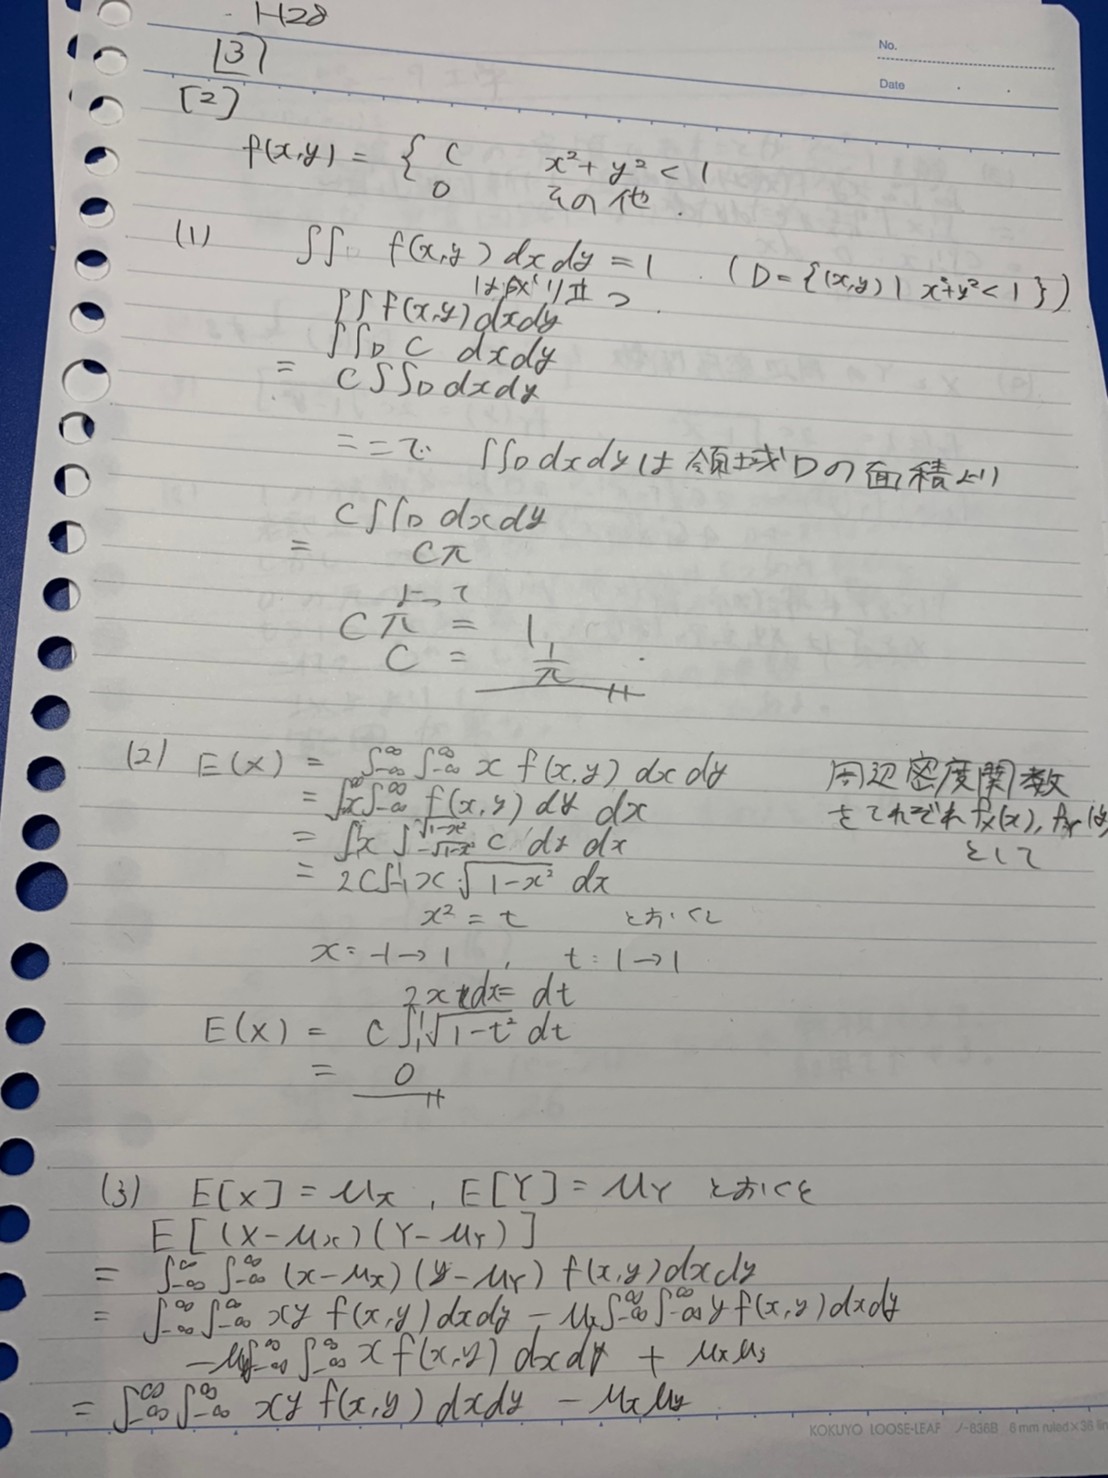 H28
[3]
No.
Date
[2]
f(x,y) = { C x²+y² < 1
0 その他.
(1) ∫∫D f(x,y) dxdy = 1 (D = {(x,y) | x²+y² < 1})
∫∫ f(x,y) dxdy
∫∫D C dxdy
= C∫∫D dxdy
ここで ∫∫D dxdy は 領域Dの面積より
C∫∫D dxdy
= Cπ
よって
Cπ = 1
C = 1/π
(2) E(X) = ∫-∞^∞ ∫-∞^∞ x f(x,y) dxdy
周辺密度関数
= ∫x∫-∞^∞ f(x,y) dy dx
をそれぞれ fx(x), fY(y)
として
= ∫x ∫-√1-x²^√1-x² C dy dx
= 2C∫-1^1 x √1-x² dx
x² = t とおくと
x: -1→1 , t: 1→1
2x dx = dt
E(X) = C∫1^1 √1-t² dt
= 0
(3) E[X] = μx , E[Y] = μY とおくと
E[(X-μx)(Y-μY)]
= ∫-∞^∞ ∫-∞^∞ (x-μx)(y-μY) f(x,y) dxdy
= ∫-∞^∞ ∫-∞^∞ xy f(x,y) dxdy - μx∫-∞^∞ ∫-∞^∞ y f(x,y) dxdy
-μy∫-∞^∞ ∫-∞^∞ x f(x,y) dxdy + μxμy
= ∫-∞^∞ ∫-∞^∞ xy f(x,y) dxdy - μxμy
KOKUYO LOOSE-LEAF ノ-836B 6mm ruled×36